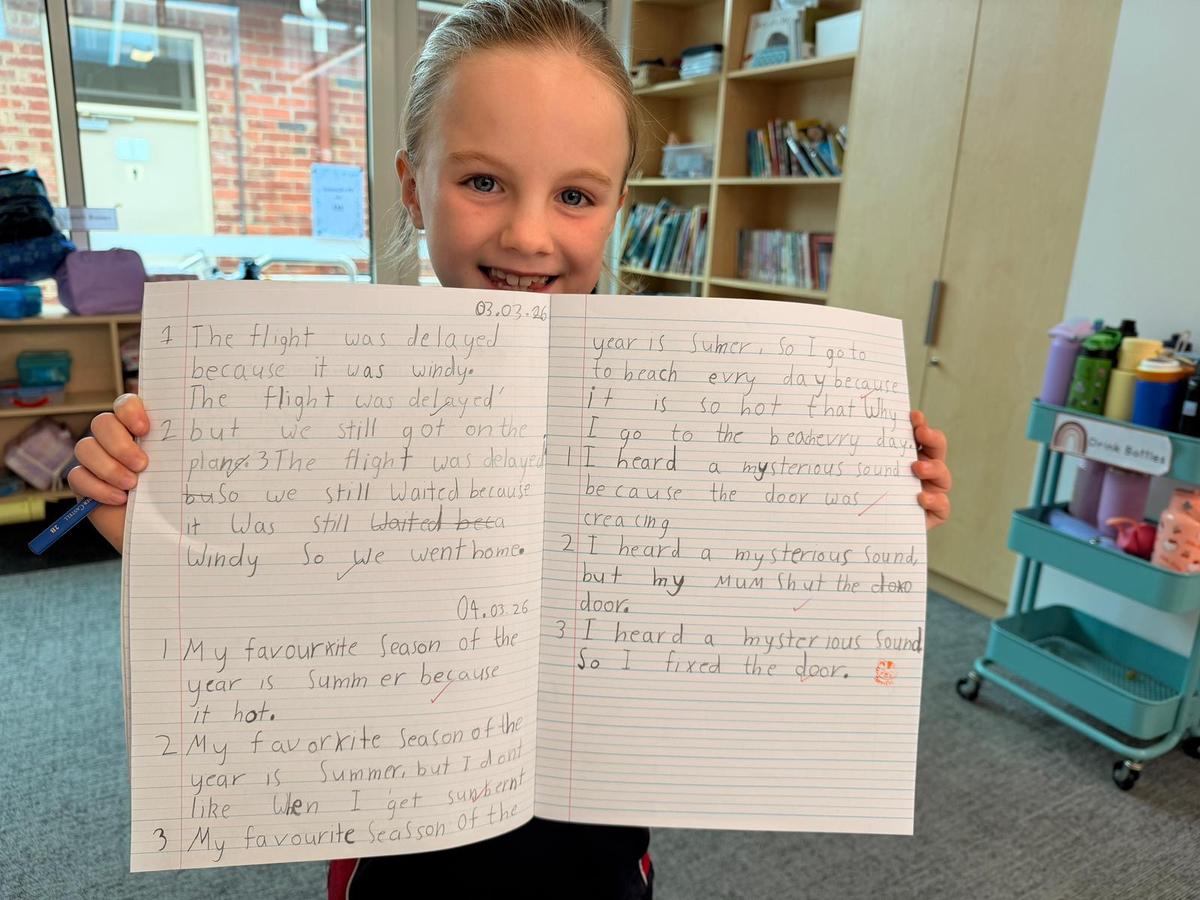 03.03.26
1 The flight was delayed
because it was windy.
The flight was delayed
2 but we still got on the
plane. 3 The flight was delayed
bu So we still Waited because
it Was still Waited beca
Windy So we went home.
04.03.26
1 My favourkite Season of the
year is Summer because
it hot.
2 My favorkite Season of the
year is Summer, but I dont
like When I get sunbernt
3 My favourite seasson of the
year is Sumer, So I go to
to beach evry day because
it is so hot that Why
I go to the beach evry day.
1 I heard a mysterious sound
because the door was
creacing
2 I heard a mysterious Sound,
but my MUM Shut the
door.
3 I heard a mysterious Sound
So I fixed the door.
Drink Bottles